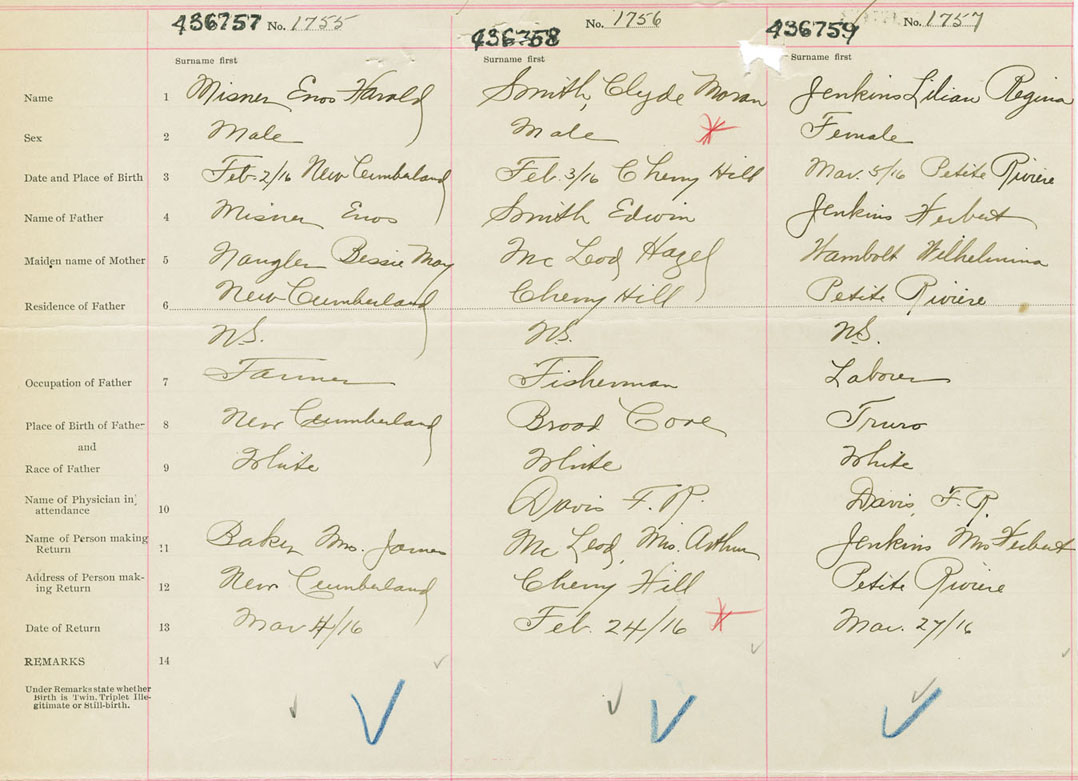 436757 No. 1755 436758 No. 1756 436759 No. 1757
Surname first Surname first Surname first
Name 1 Misner Enos Harold Smith, Clyde Moran Jenkins Lilian Regina
Sex 2 Male Male Female
Date and Place of Birth 3 Feb. 2/16 New Cumberland Feb. 3/16 Cherry Hill Mar. 5/16 Petite Riviere
Name of Father 4 Misner Enos Smith Edwin Jenkins Herbert
Maiden name of Mother 5 Naugler Bessie May Mc Leod, Hazel Wambolt Wilhelmina
Residence of Father 6 New Cumberland Cherry Hill Petite Riviere
N.S. N.S. N.S.
Occupation of Father 7 Farmer Fisherman Laborer
Place of Birth of Father 8 New Cumberland Broad Cove Truro
and
Race of Father 9 White White White
Name of Physician in attendance 10 Davis F. R. Davis, F. R.
Name of Person making Return 11 Baker Mrs. James Mc Leod, Mrs. Arthur Jenkins Mrs Herbert
Address of Person making Return 12 New Cumberland Cherry Hill Petite Riviere
Date of Return 13 Mar 4/16 Feb. 24/16 Mar. 27/16
REMARKS 14
Under Remarks state whether
Birth is Twin, Triplet Ille-
gitimate or Still-birth.